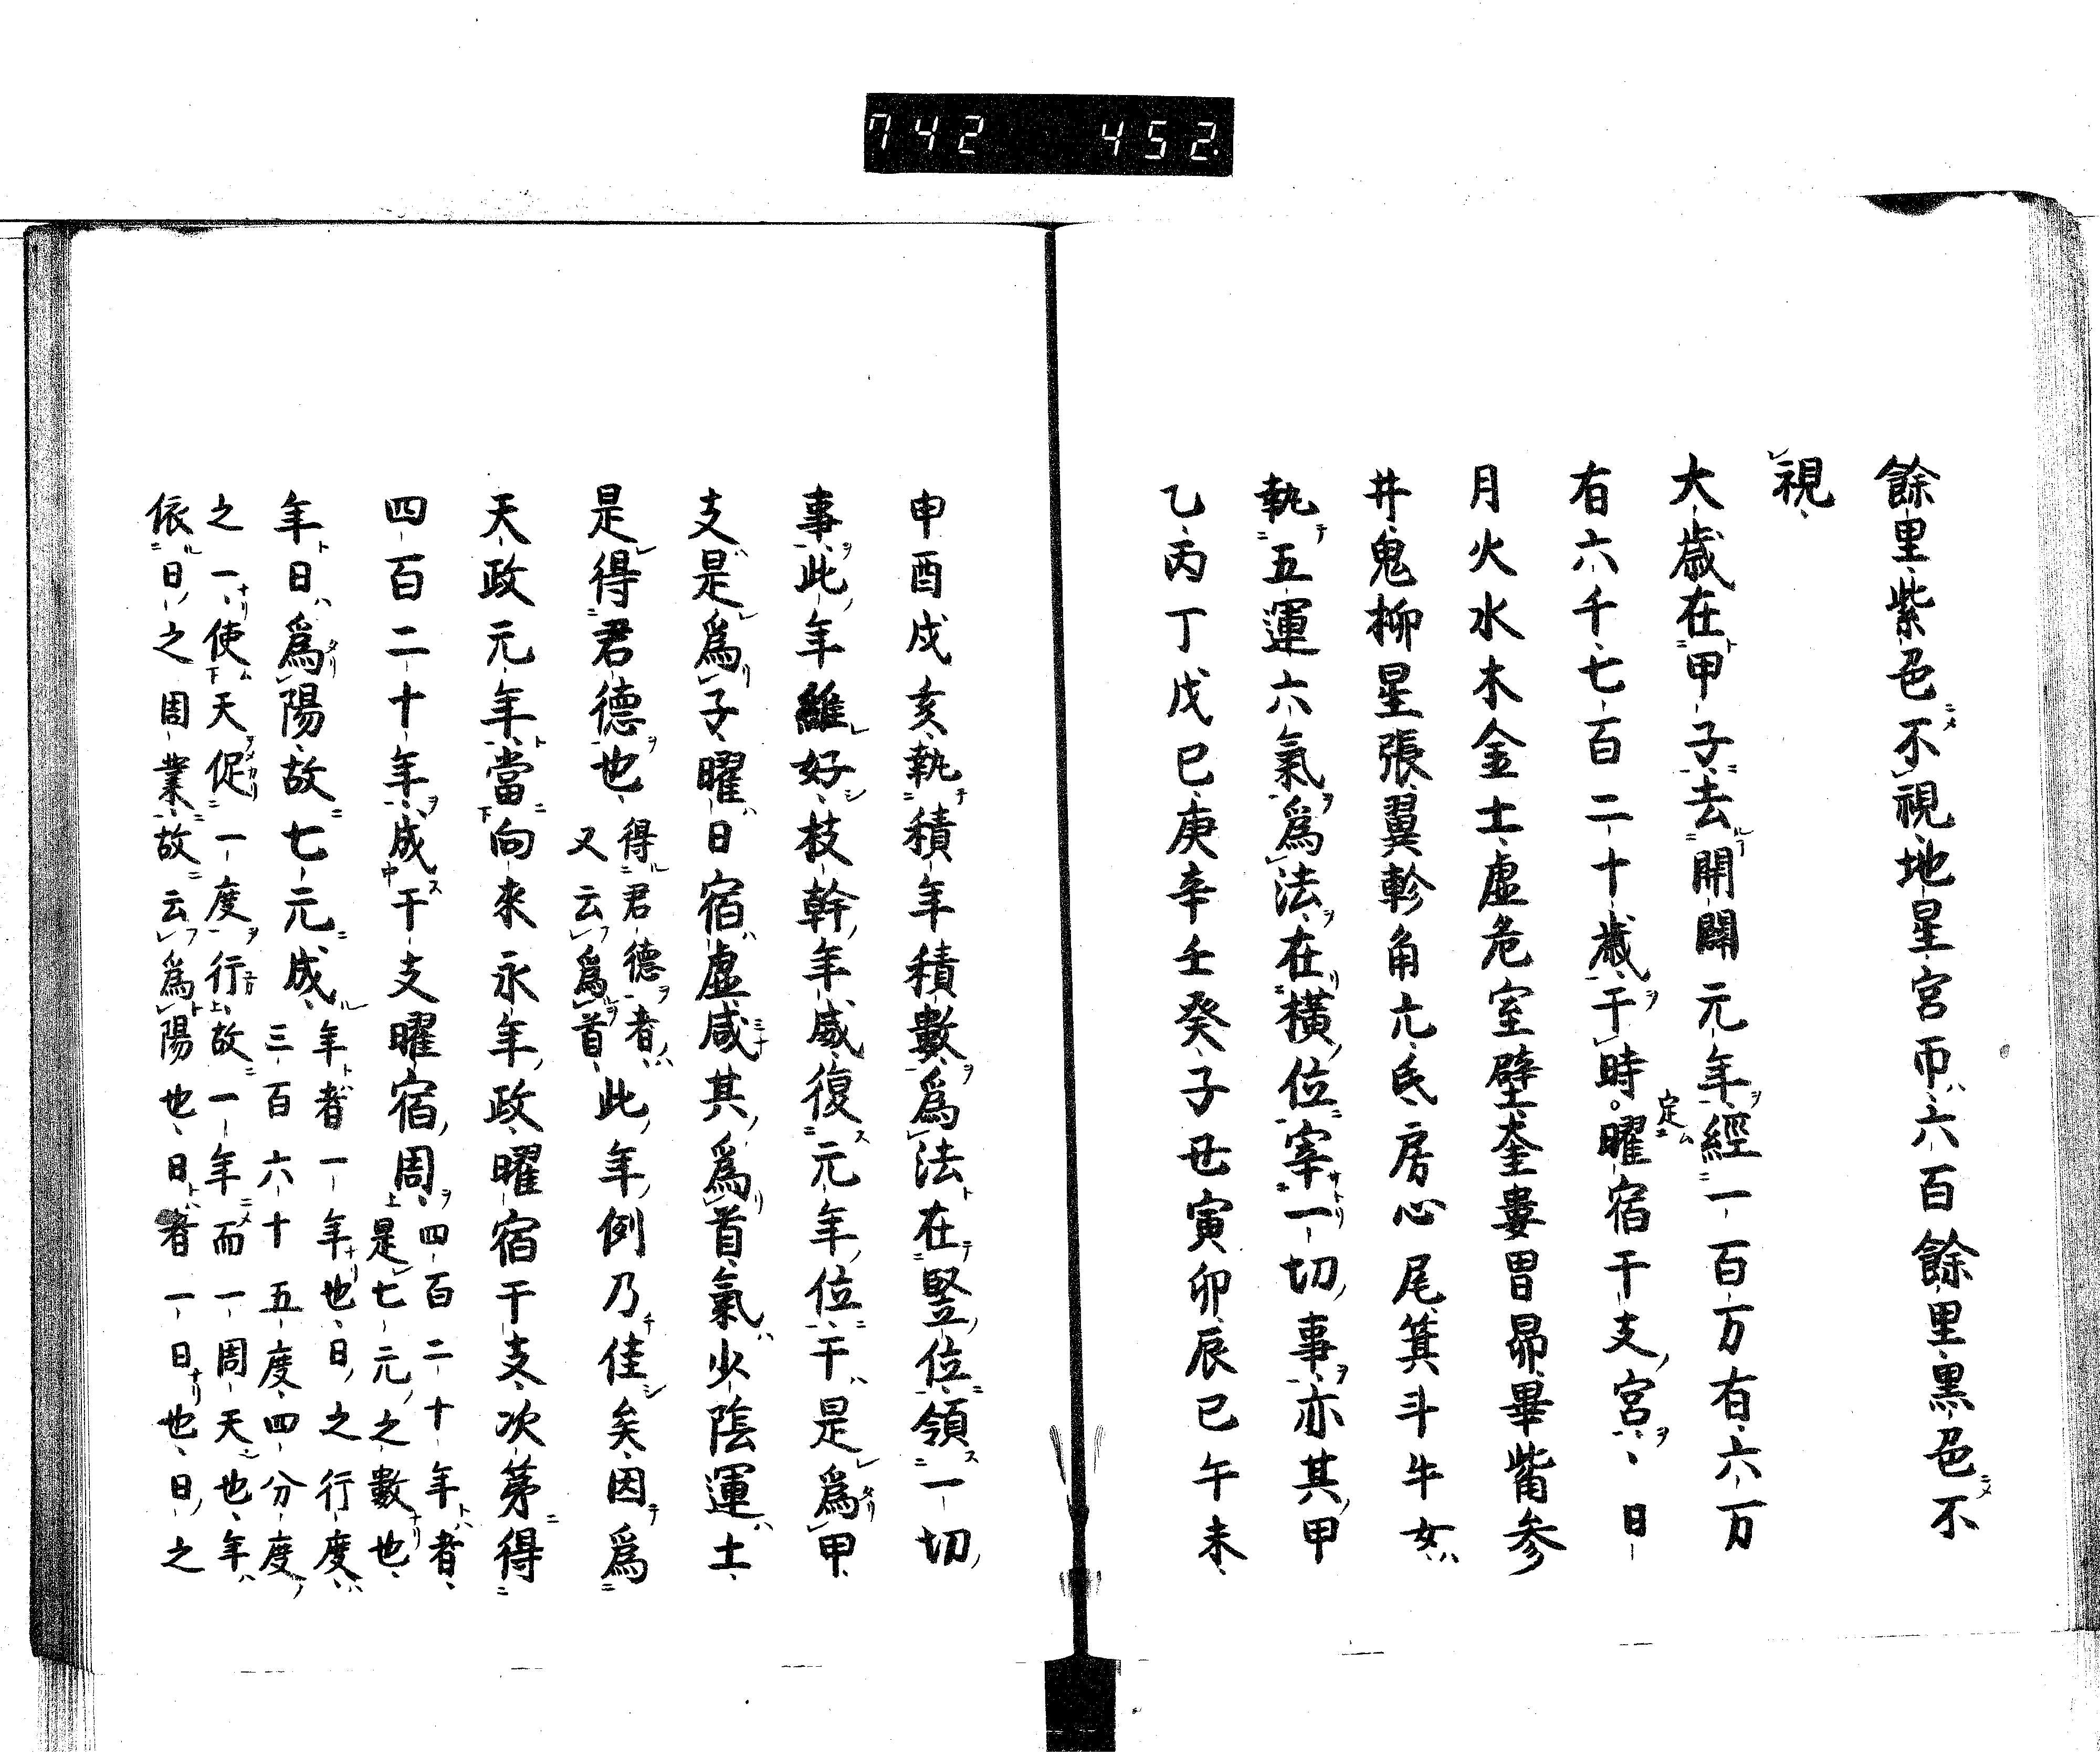 742 452
餘里紫色不視地星宮帀六百餘里黒色不
視
大歳在甲子去開闢元年經一百万有六万
有六千七百二十歳干時定曜宿干支宮、日
月火水木金土虚危室壁奎婁胃昴畢觜参
井鬼柳星張翼軫角亢氐房心尾箕斗牛女
執五運六氣爲法在横位宰一切事亦其甲
乙丙丁戊己庚辛壬癸子丑寅卯辰巳午未
申酉戌亥執積年積數爲法在竪位領一切
事此年維好枝幹年威復元年位干是爲甲
支是爲子曜日宿虚咸其爲首氣少陰運土
是得君德也
得君德者
又云爲首
此年例乃佳矣因爲
天政元年當向來永年政曜宿干支次第得
四百二十年成干支曜宿周
四百二十年者
是七元之數也
年日爲陽故七元成
年者一年也日之行度
三百六十五度四分度
之一使天促一度行故一年而一周天也年
依日之周業故云爲陽也日者一日也日之